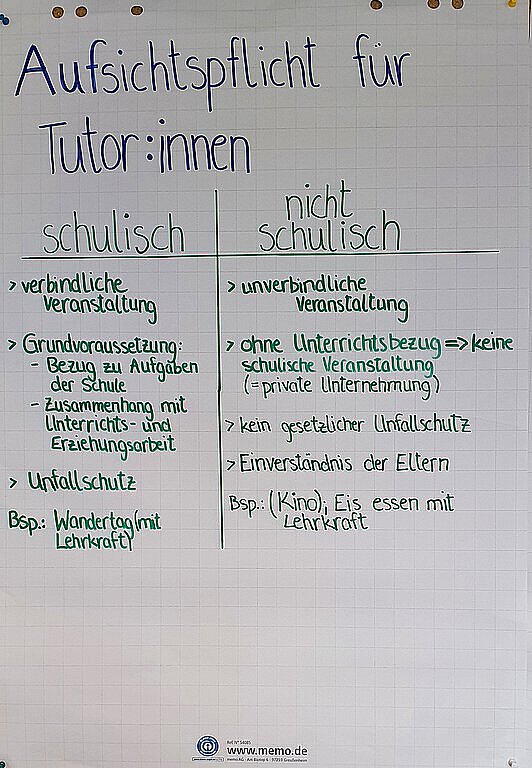 Aufsichtspflicht für
Tutor:innen
schulisch
> verbindliche
Veranstaltung
> Grundvoraussetzung:
- Bezug zu Aufgaben
der Schule
- Zusammenhang mit
Unterrichts- und
Erziehungsarbeit
> Unfallschutz
Bsp.: Wandertag (mit
Lehrkraft)
nicht
schulisch
> unverbindliche
Veranstaltung
> ohne Unterrichtsbezug => keine
schulische Veranstaltung
(= private Unternehmung)
> kein gesetzlicher Unfallschutz
> Einverständnis der Eltern
Bsp.: (Kino), Eis essen mit
Lehrkraft
Ref. N° 54085
www.memo.de
memo AG · Am Biotop 6 · 97259 Greußenheim